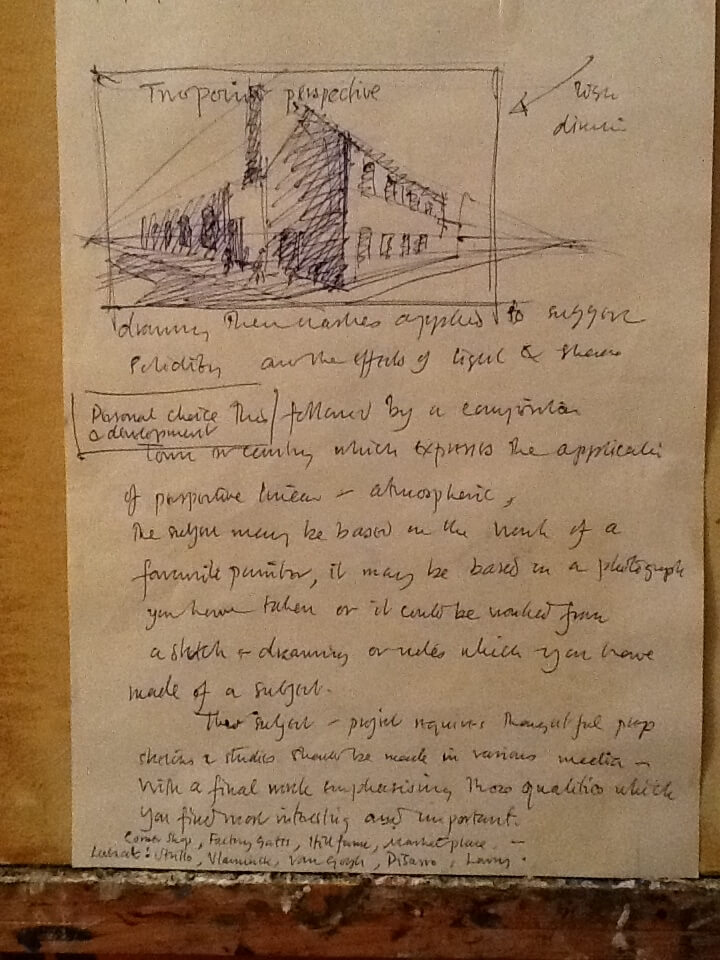 Two point perspective
drawing then washes applied to suggest
solidity and the effects of light & shade
Personal choice
& development
This followed by a composition
town or country which expresses the application
of perspective linear & atmospheric,
The subject may be based on the work of a
favourite painter, it may be based on a photograph
you have taken or it could be worked from
a sketch & drawing or notes which you have
made of a subject.
subject - project requires thoughtful prep
sketches & studies should be made in various media -
with a final work emphasising those qualities which
you find most interesting and important.
Corner Shop, Factory Gates, Hill farm, Market place, -
Look at: Utrillo, Vlaminck, Van Gogh, Pissarro, Lowry.